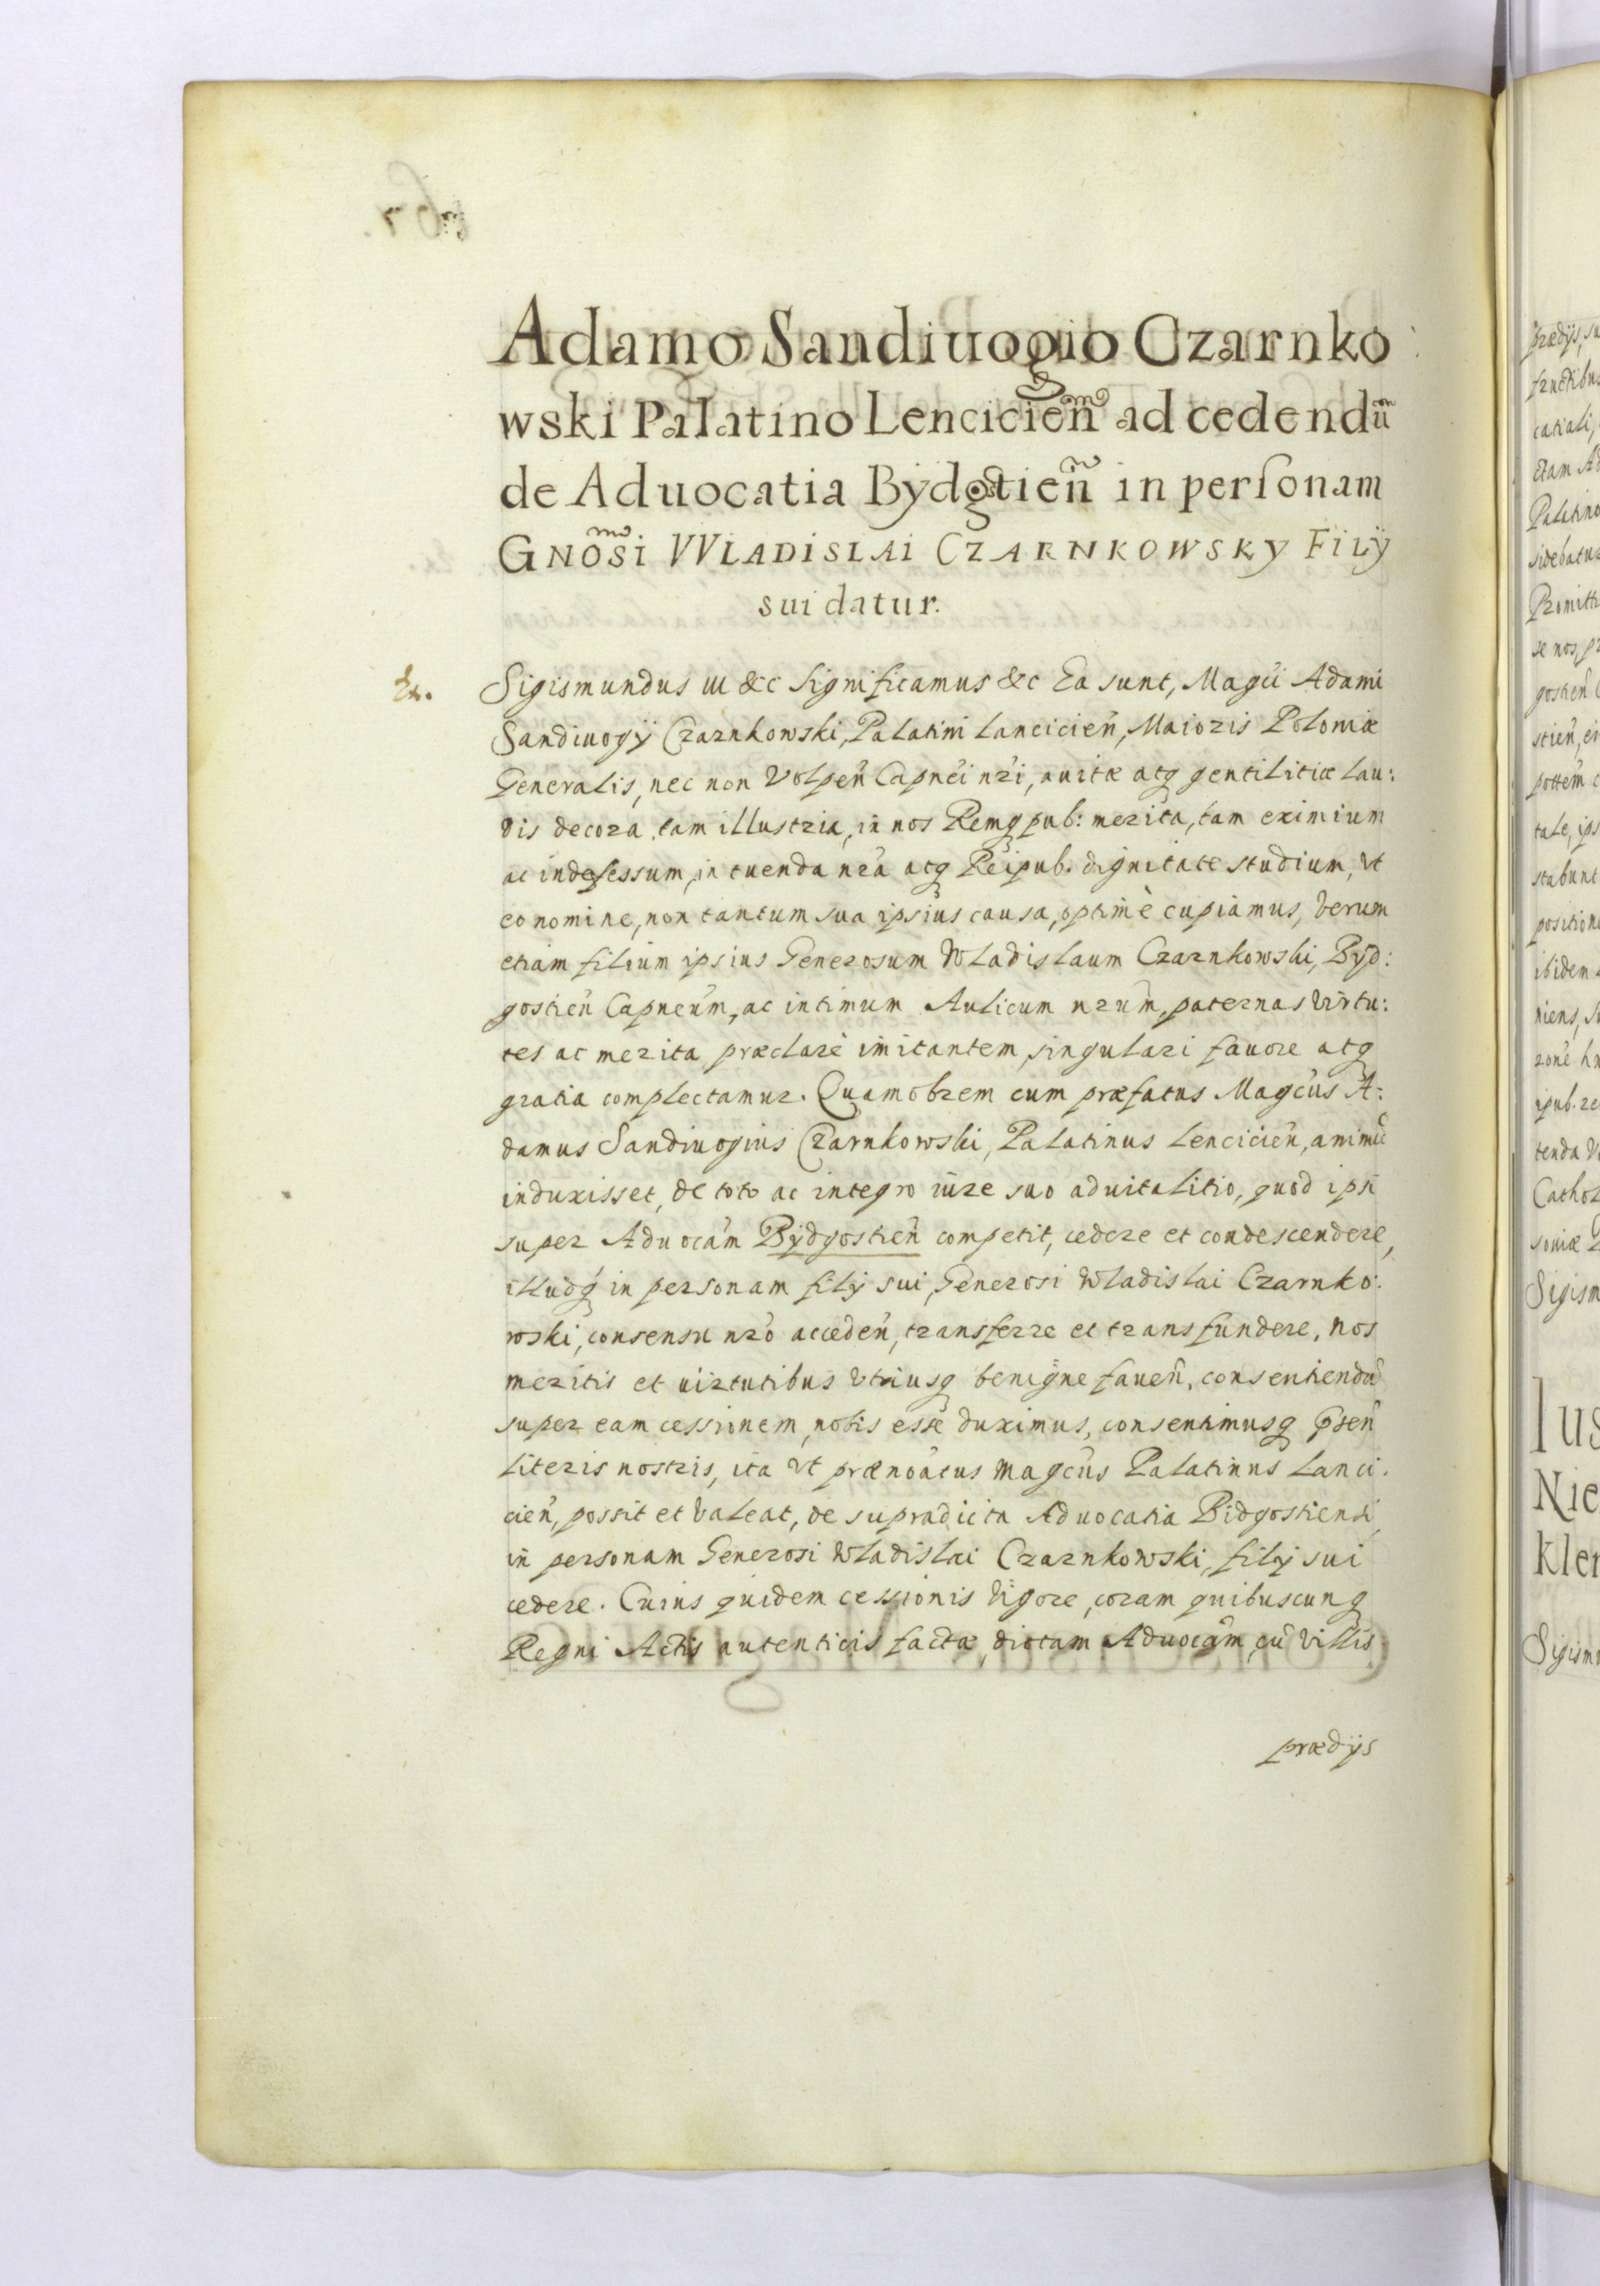 Adamo Sandiuogio Czarnko
wski Palatino Lencicieñ ad cedendũ
de Aduocatia Bydgstieñ in personam
Gnosi VVladislai Czarnkowsky Filÿ
sui datur.
Ex. Sigismundus III &c Significamus &c Ea sunt, Magci Adami
Sandiuogÿ Czarnkowski, Palatini Lancicieñ, Maioris Poloniæ
Generalis, nec non Volpeñ Capnei nri, auitæ atq gentilitiæ lau:
dis decora, tam illustria, in nos Remq pub: merita, tam eximium
ac indefessum, in tuenda nra atq Reipub. dignitate studium, vt
eo nomine, non tantum sua ipsius causa, optimè cupiamus, verum
etiam filium ipsius Generosum Wladislaum Czarnkowski, Byd:
gostieñ Capneum, ac intimum Aulicum nrum, paternas virtu:
tes ac merita præclarè imitantem, singulari fauore atq
gratia complectamur. Quamobrem cum præfatus Magcus A:
damus Sandiuogius Czarnkowski, Palatinus Lencicieñ, animũ
induxisset, de toto ac integro iure suo aduitalitio, quod ipsi
super Aduocam Bydgostieñ competit, cedere et condescendere,
illudq in personam filÿ sui, Generosi Wladislai Czarnko:
wski, consensu nro accedeñ, transferre et transfundere, nos
meritis et uirtutibus vtriusq benigne faueñ, consentiendũ
super eam cessionem, nobis esse duximus, consentimusq pnteñ
literis nostris, ita vt prænoatus Magcus Palatinus Lanci.
cieñ, possit et valeat, de supradicta Aduocatia Bidgostiensi,
in personam Generosi Wladislai Czarnkowski, filÿ sui
cedere. Cuius quidem cessionis vigore, coram quibuscunq
Regni Actis autenticis factæ, dictam Aduocam, cũ villis
prædijs
prædijs, su
catiali,
etiam Ad
Palatino
sidebatur
Promitt
se nos, pr
gostieñ
stieñ, ei
tale, ips
stabunt
position
ibidem
niens, su
ipub. re
tenda v
Cathol
soniæ
Sigism
Ius
Nie
Kler
Sigism